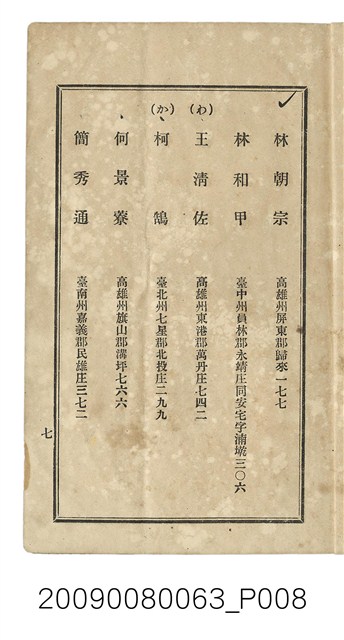 林朝宗 高雄州屏東郡歸來一七七
林和甲 臺中州員林郡永靖庄同安宅字湳墘三〇六
(わ)
王清佐 高雄州東港郡萬丹庄七四二
(か)
柯鵠 臺北州七星郡北投庄二九九
何景寮 高雄州旗山郡溝坪七六六
簡秀通 臺南州嘉義郡民雄庄三七二
七
20090080063_P008